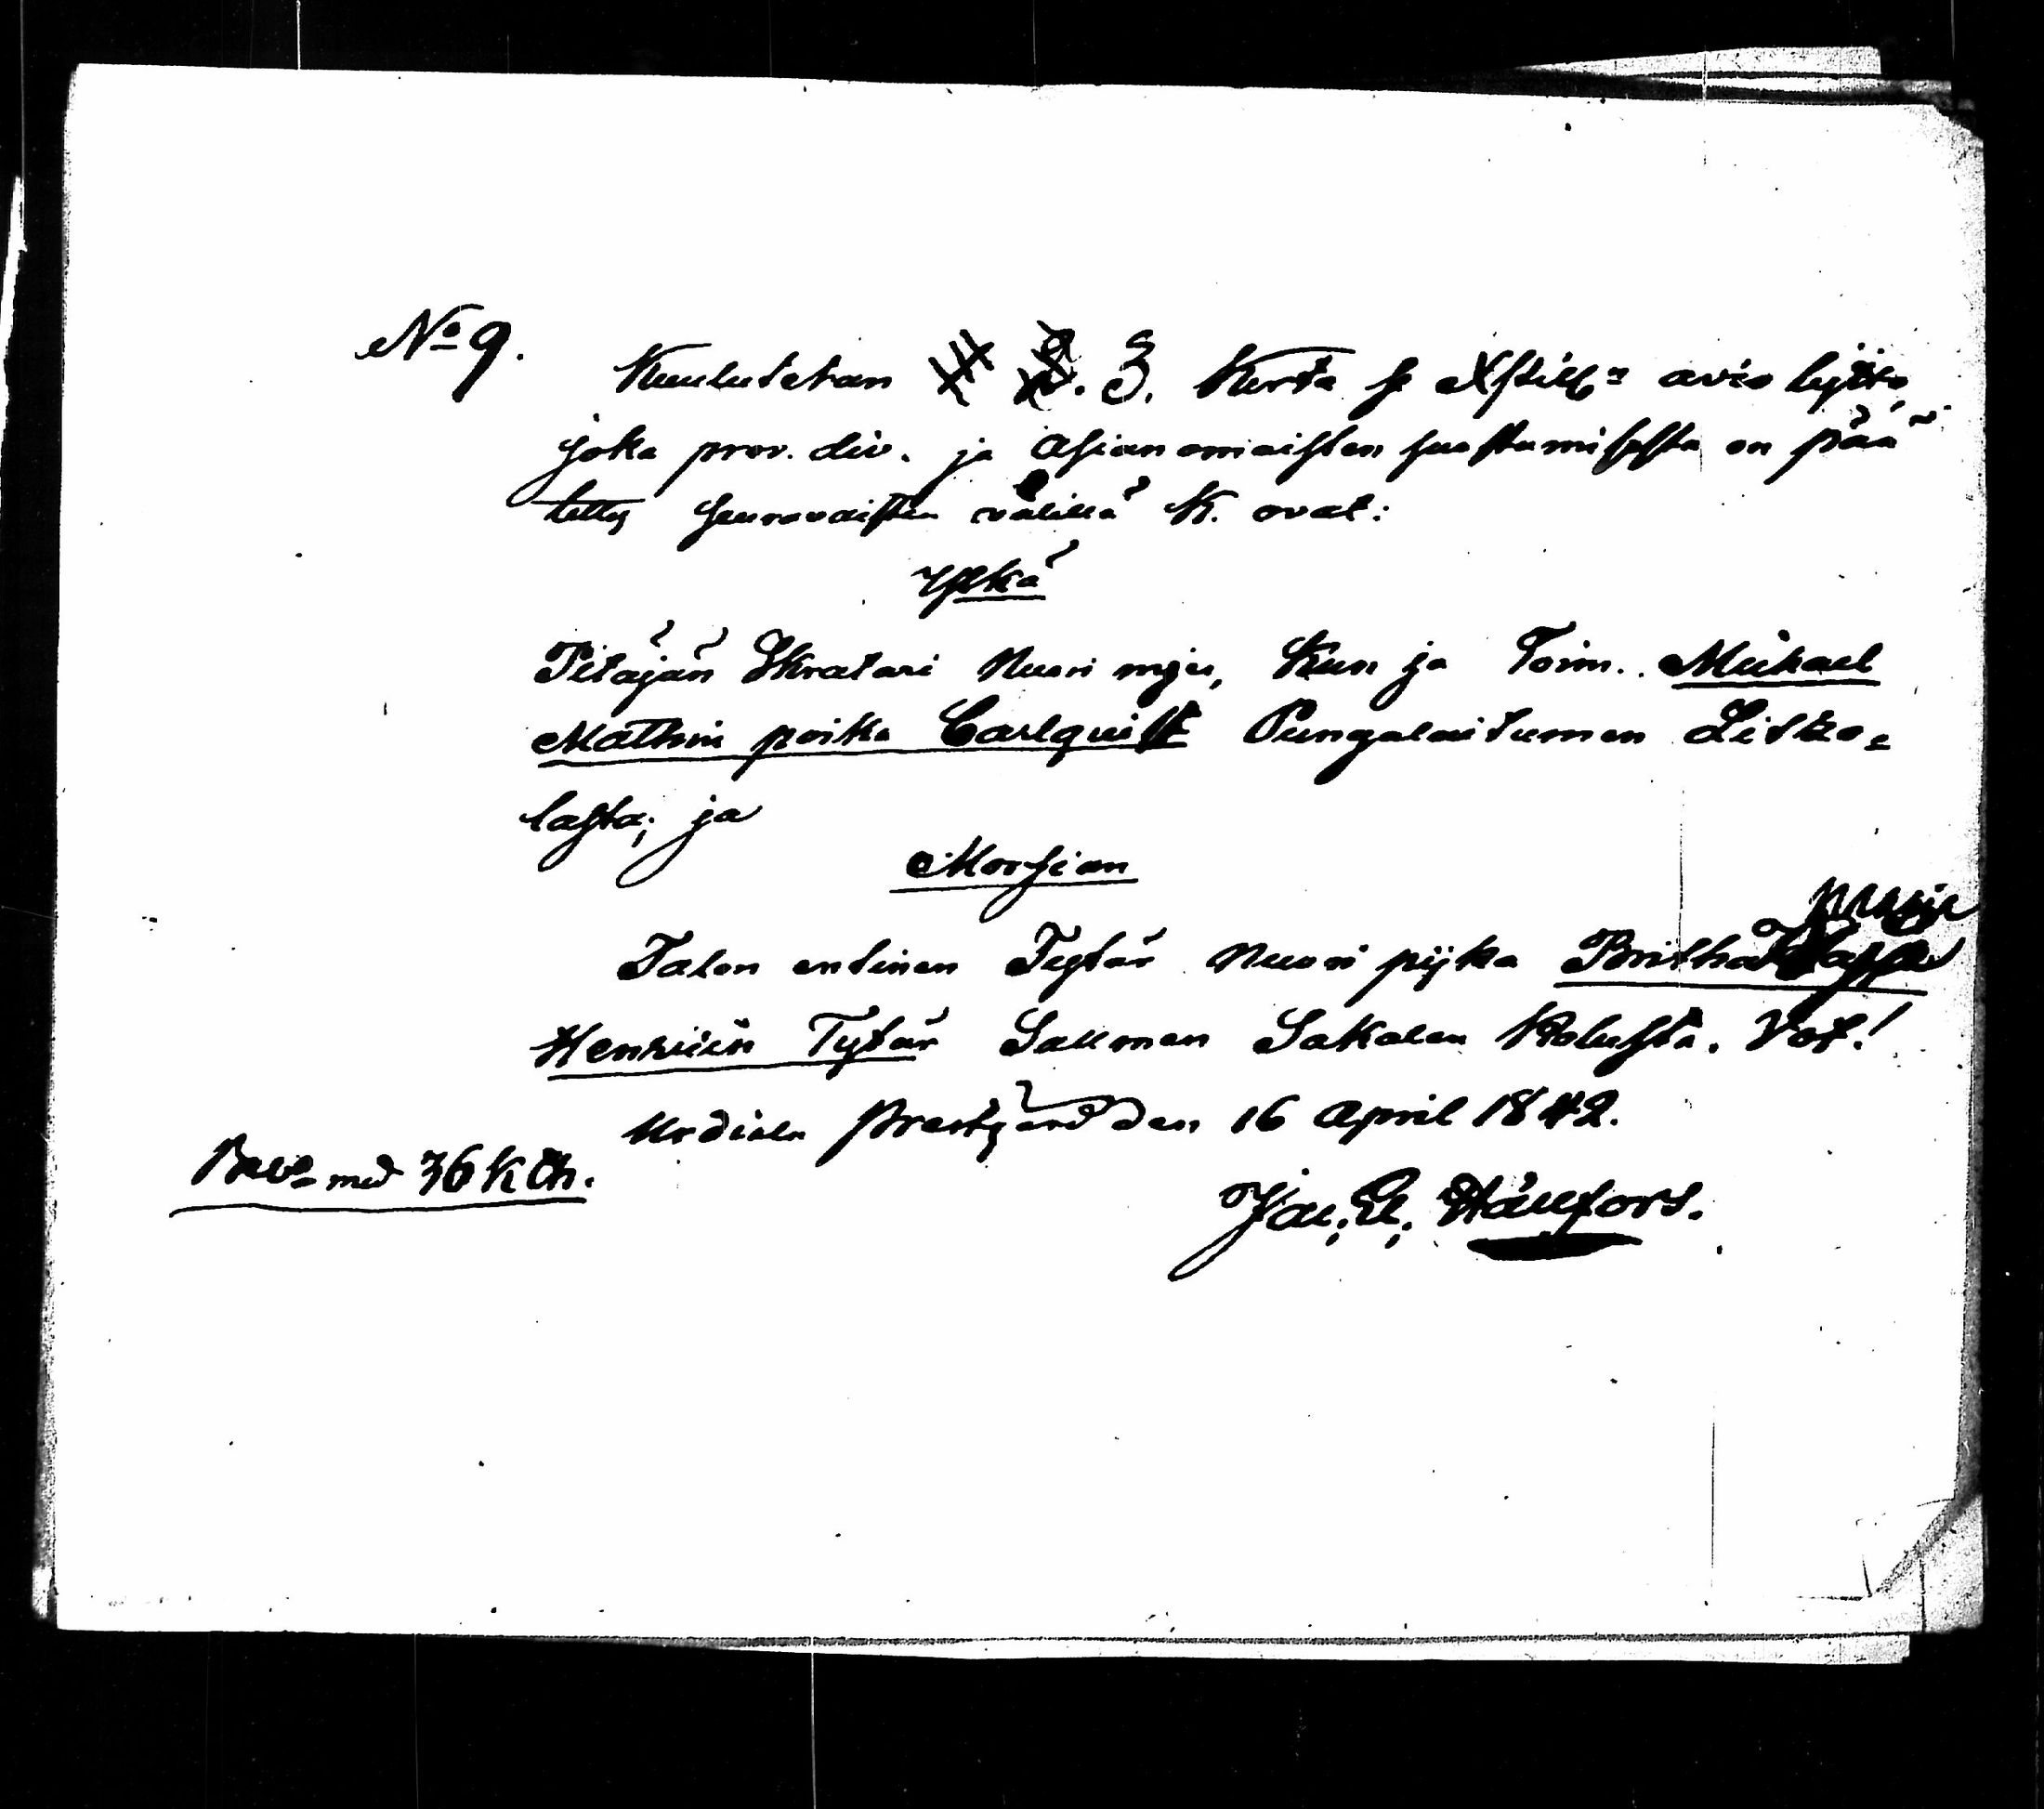 No 9.
Kuulutetan 3. Kerta avio lijtto,
joka prov. div. ja Asianomaisten suostumisesta on pää
tetty seuravaisten välillä K. ovat:
Yljkä
Pitäjän Skratari Nuori mjes, Kun ja Toim. Michael
Mathin poika Carlquist Pungalaitumen Litko=
lasta; ja
Morsian
Talon entinen Tytär Nuori pijka Britha
Henricin Tytär Salmen Sakalan Kylästä. Vot!
Urdiala Prestgård den 16 April 1842.
Bev. med 36 K
Jac. Ed. Hällfors.